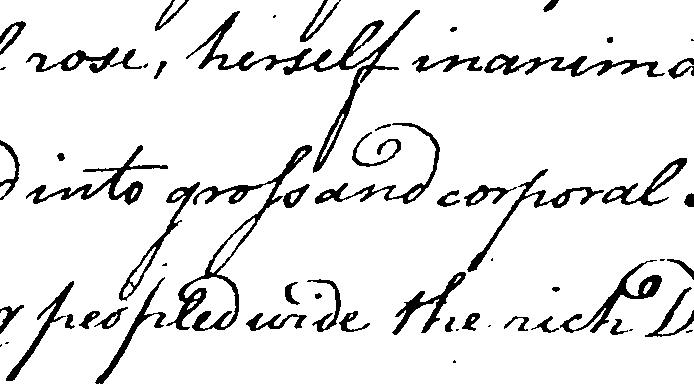 rose, herself
into groſs and corporal
peopled wide the rich